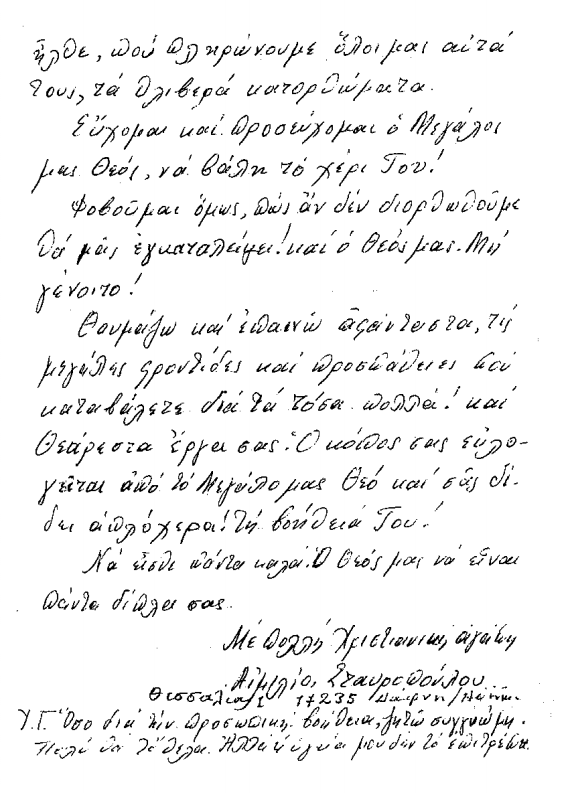 ἦλθε, πού πληρώνουμε ὅλοι μας αὐτά
τους, τά θλιβερά κατορθώματα.
Εὔχομαι καί προσεύχομαι ὁ Μεγάλος
μας Θεός, νά βάλη τό χέρι Του!
Φοβοῦμαι ὅμως, πώς ἄν δέν διορθωθοῦμε
θά μᾶς ἐγκαταλείψει! καί ὁ Θεός μας. Μή
γένοιτο!
Θαυμάζω καί ἐπαινῶ ἀφάνταστα, τίς
μεγάλες φροντίδες και προσπάθειες πού
καταβάλετε διά τά τόσα πολλά! καί
Θεάρεστα ἔργα σας. Ὁ κόπος σας εὐλο-
γεῖται ἀπό τό Μεγάλο μας Θεό καί σᾶς δί-
δει ἁπλόχερα! τή βοήθειά Του!
Νά εἶσθε πάντα καλά. Ὁ Θεός μας νά εἶναι
πάντα δίπλα σας.
Μέ πολλή Χριστιανική ἀγάπη
Αἰμιλία Σταυροπούλου
Θεσσαλίας 17235 Δάφνη/
Υ.Γ. Ὅσο διά τήν προσωπική βοήθεια, ζητῶ συγγνώμη.
Πολύ θά τό ἤθελα. Ἀλλά ἡ ὑγεία μου δέν τό ἐπιτρέπει.